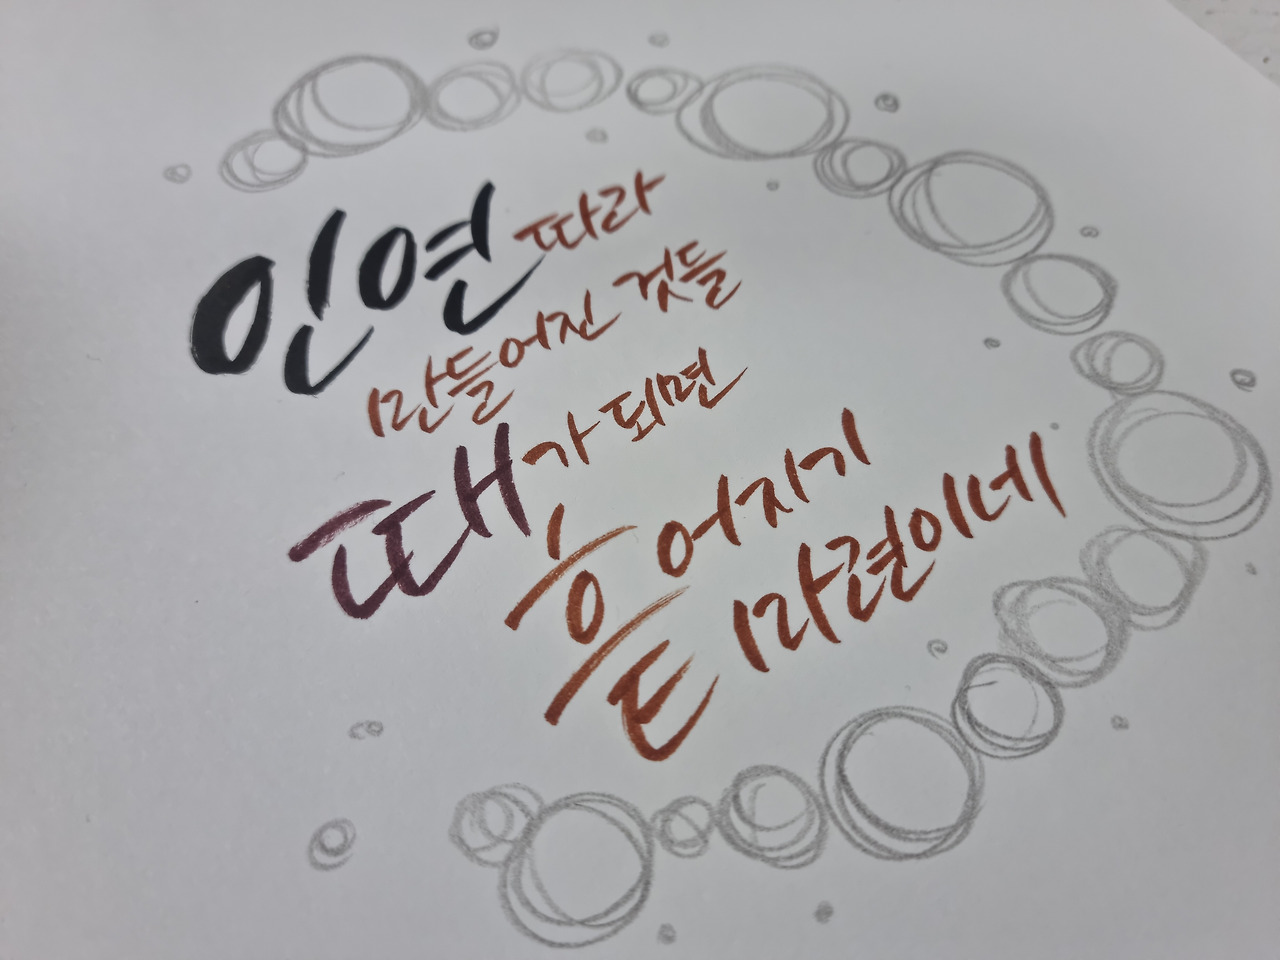 인연따라
만들어진 것들
때가 되면
흩어지기
마련이네